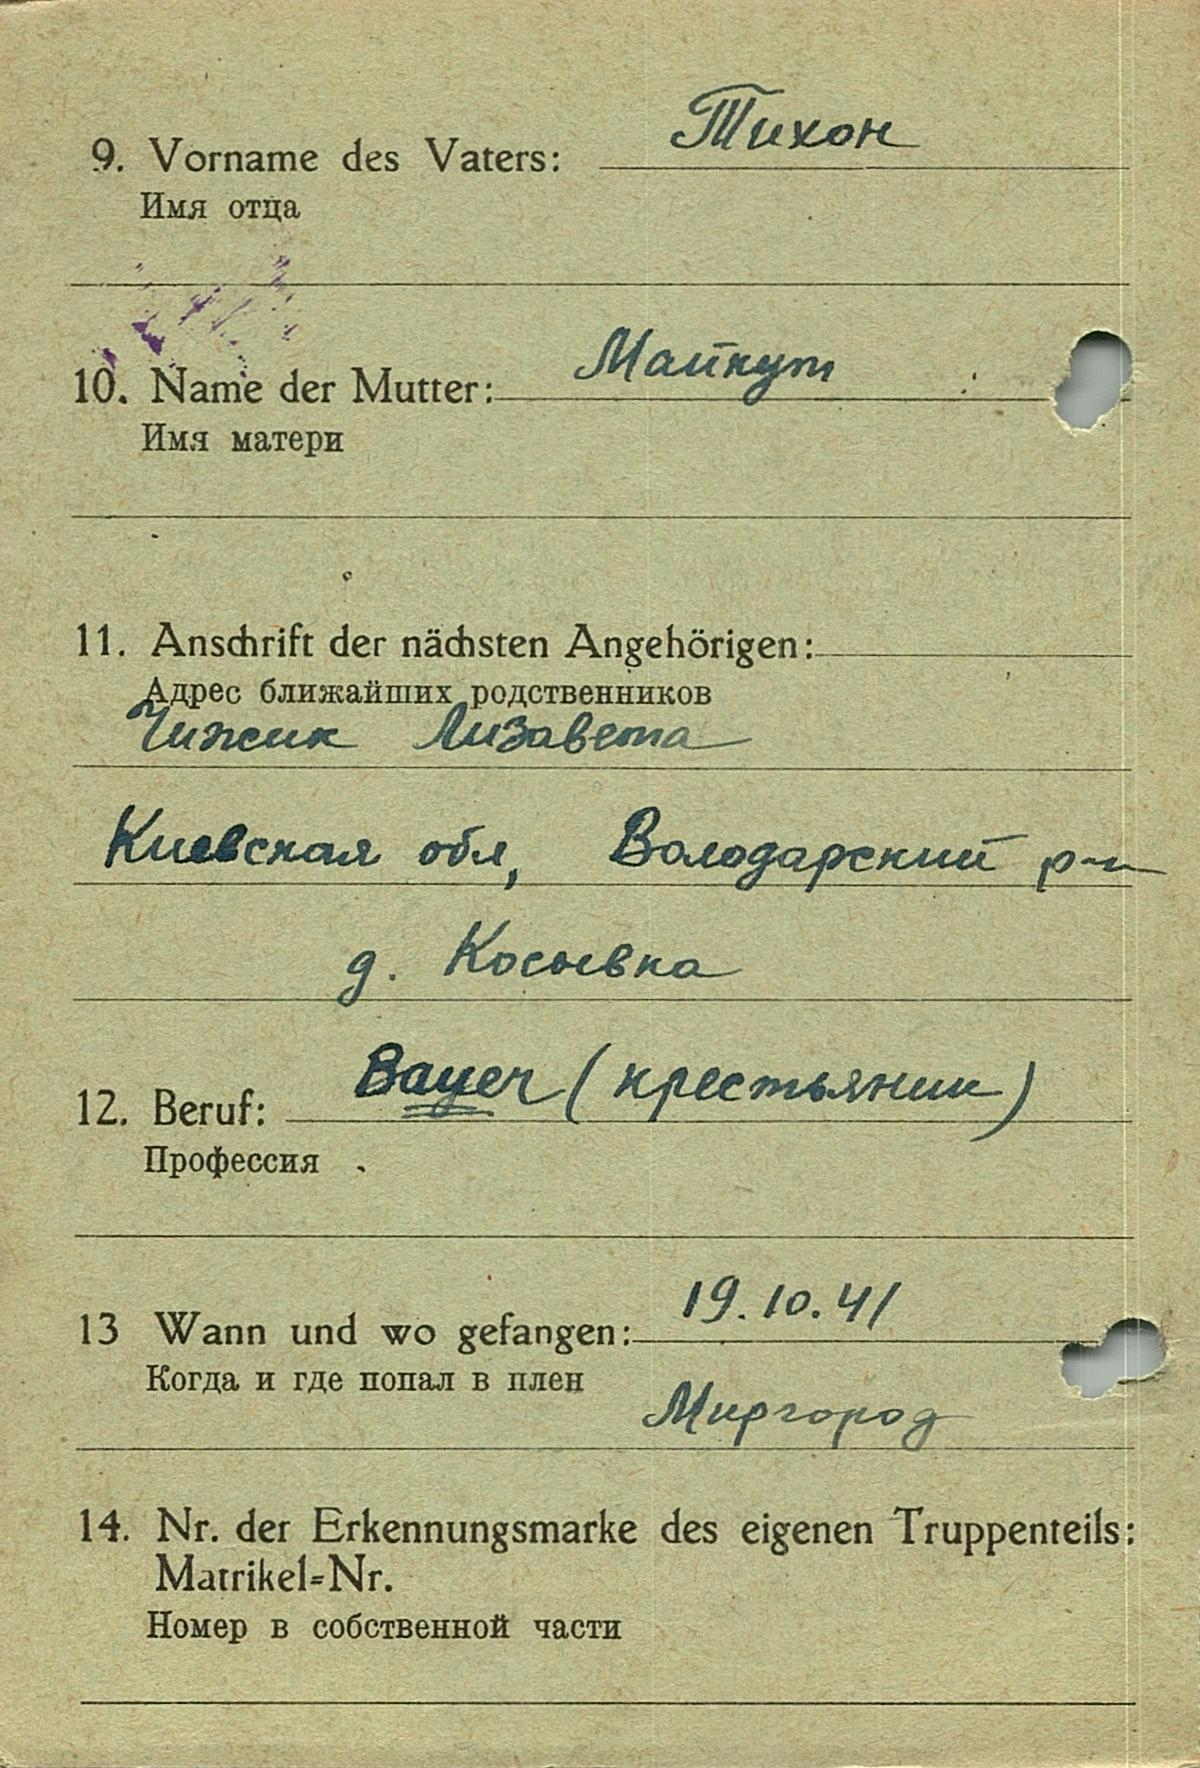 9. Vorname des Vaters: Тихон
Имя отца
10. Name der Mutter: Майкут
Имя матери
11. Anschrift der nächsten Angehörigen:
Адрес ближайших родственников
Чижик Лизавета
Киевская обл, Володарский р-н
д. Косыевка
12. Beruf: Bauer (крестьянин)
Профессия
13 Wann und wo gefangen: 19.10.41
Когда и где попал в плен
Миргород
14. Nr. der Erkennungsmarke des eigenen Truppenteils:
Matrikel-Nr.
Номер в собственной части